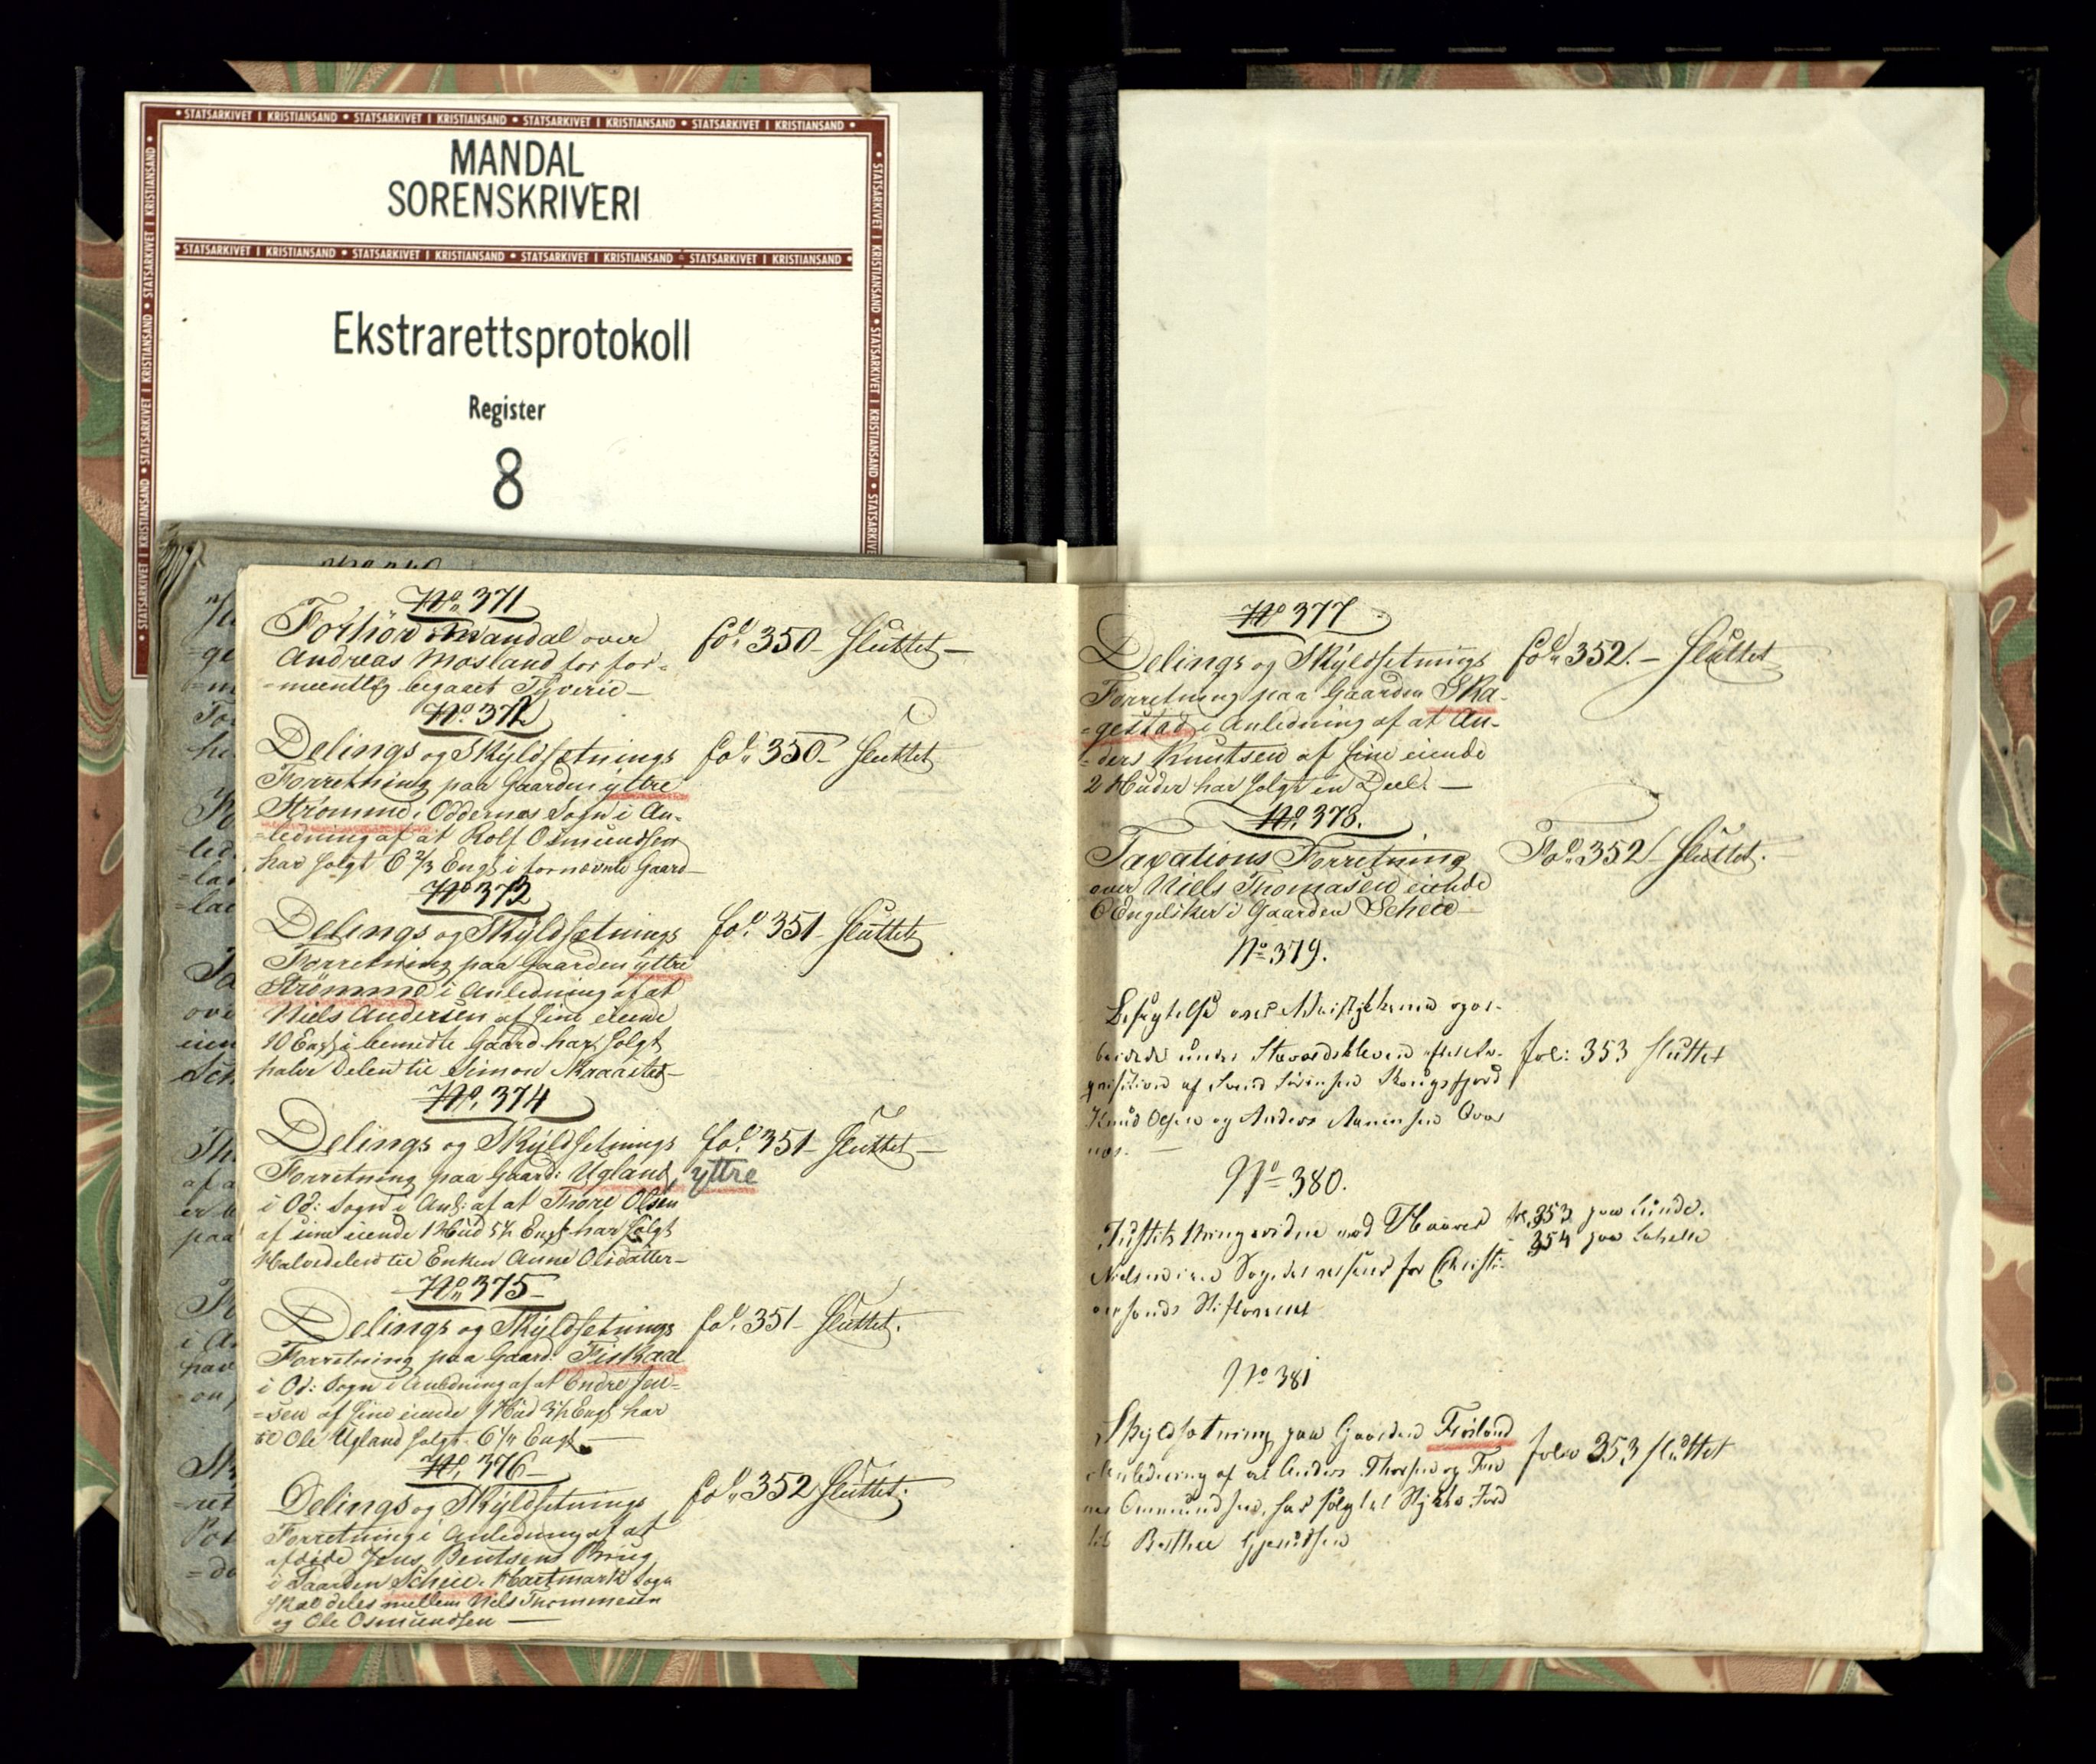 MANDAL
SORENSKRIVERI
STATSARKIVET I KRISTIANSAND • STATSARKIVET I KRISTIANSAND • STATSARKIVET I KRISTIANSAND • STATSARKIVET I KRISTIANSAND
Ekstrarettsprotokoll
Register
8
No. 371
Forhör i Mandal over
Andreas Mosland for for-
=meentlig begaaet Tyverie —
fol. 350 - Sluttet —
No. 372
Delings og Skyldsetnings
Forretning paa Gaarden yttre
Strømme i Oddernes Sogn i An-
=ledning af at Rolf Osmundsen
har solgt 6 2/3 Engs i fornævnte Gaard —
fol. 350 - Sluttet
No. 373
Delings og Skyldsetnings
Forretning paa Gaarden yttre
Strømme i Anledning af at
Niels Andersen af sine eiende
10 Engs i bemeldte Gaard har solgt
halve Delen til Simon —
fol. 351 - Sluttet
No. 374
Delings og Skyldsetnings
Forretning paa Gaard: Ugland, yttre
i Od: Sogn i Anl: af at Thore Olsen
af sine eiende 1 Hud 5½ Engs har solgt
Halvedelen til Enken Anne Olsdatter —
fol. 351 - Sluttet —
No. 375
Delings og Skyldsetnings
Forretning paa Gaard: Fiskaae
i Od: Sogn i Anledning af at Endre Jen-
=sen af sine eiende 1 Hud 3½ Engs har
til Ole Ugland solgt 6¼ Engs —
fol. 351 - Sluttet.
No. 376
Delings og Skyldsetnings
Forretning i Anledning af at
afdøde Jens Bentsens Brug
i Gaarden Scheie Hartmark Sogn
skal deles mellem Niels Thommesen
og Ole Osmundsen —
fol. 352 Sluttet.
No 377
Delings og Skyldsetnings
Forretning paa Gaarden Ska-
=gestad i Anledning af at An-
=ders Knutsen af sine eiende
2 Huder har solgt en Deel. —
fol. 352. - Sluttet
No. 378.
Taxations Forretning
over Niels Thomasen eiende
6 Engelsker i Gaarden Scheie —
Fol. 352 - Sluttet.
No 379.
Besigtelse over
under Stavordskleven
af Svend Sörensen
Knud Olsen og Anders Aanensen
fol: 353 sluttet
No 380.
Justits Thingsvidne mod Haaver
Nielsen
sands Stiftsret
fol. 353 paa Lunde.
- 354 paa
No 381
Skyldsætning paa Gaarden Frösland
i Anledning af at Anders Thorsen og
Ommundsen, har solgt et Stykke Jord
til Berthe
folio 353 sluttet